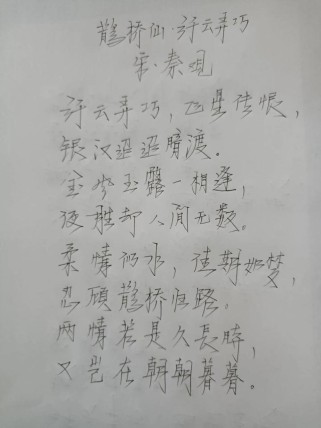 鹊桥仙·纤云弄巧
宋·秦观
纤云弄巧，飞星传恨，
银汉迢迢暗渡．
金风玉露一相逢，
便胜却人间无数。
柔情似水，佳期如梦，
忍顾鹊桥归路．
两情若是久長時，
又岂在朝朝暮暮。